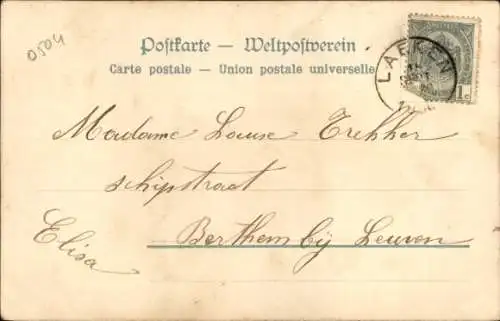 0504
Postkarte — Weltpostverein
Carte postale — Union postale universelle
LAEKEN
1c
Madame Louise Trekker
schipstraat
Berthem bij Leuven
Elisa